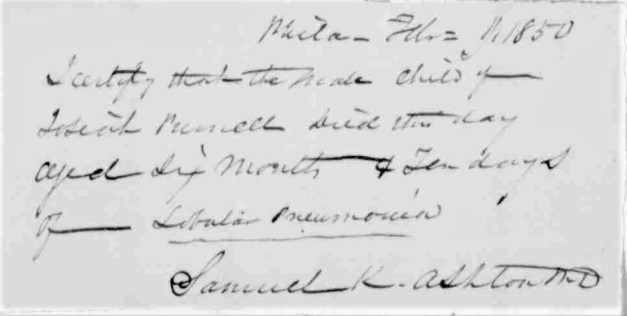 Phila - Feb = 1850
I certify that the Male Child of
Josiah died this day
aged Six Months & Ten days
of Lobular Pneumonia
Samuel K. Ashton MD